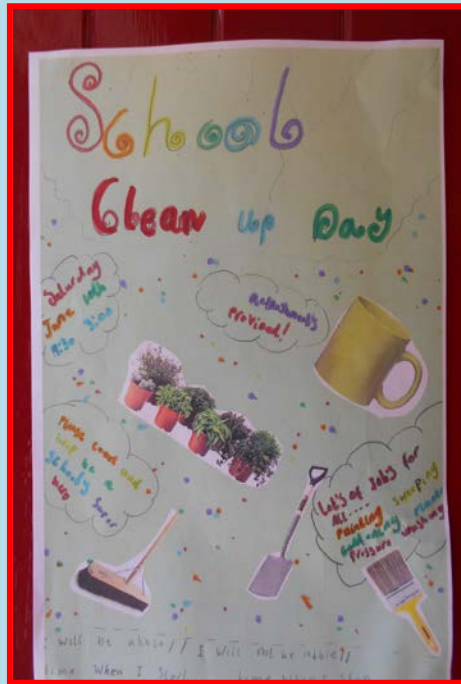 School
Clean up Day
Saturday
June 10th
9:30 3:00
Refreshments
Provided!
Please come and
help be a
school's super
Lots of Jobs for
All....
Painting sweeping
Gardening
Pressure washing
will be able // I will not be able //
time When I Start time When I Stop